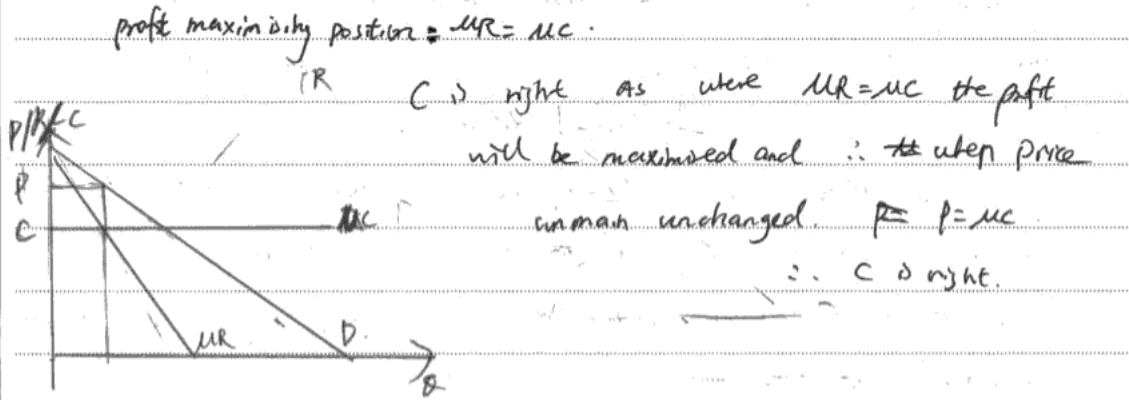 profit maximising position = MR = MC.
C is right As where MR=MC the profit
will be maximised and ∴ when price
unchanged. P=MC
∴ C is right.
P/R/C
P
C
MC
MR
D
Q